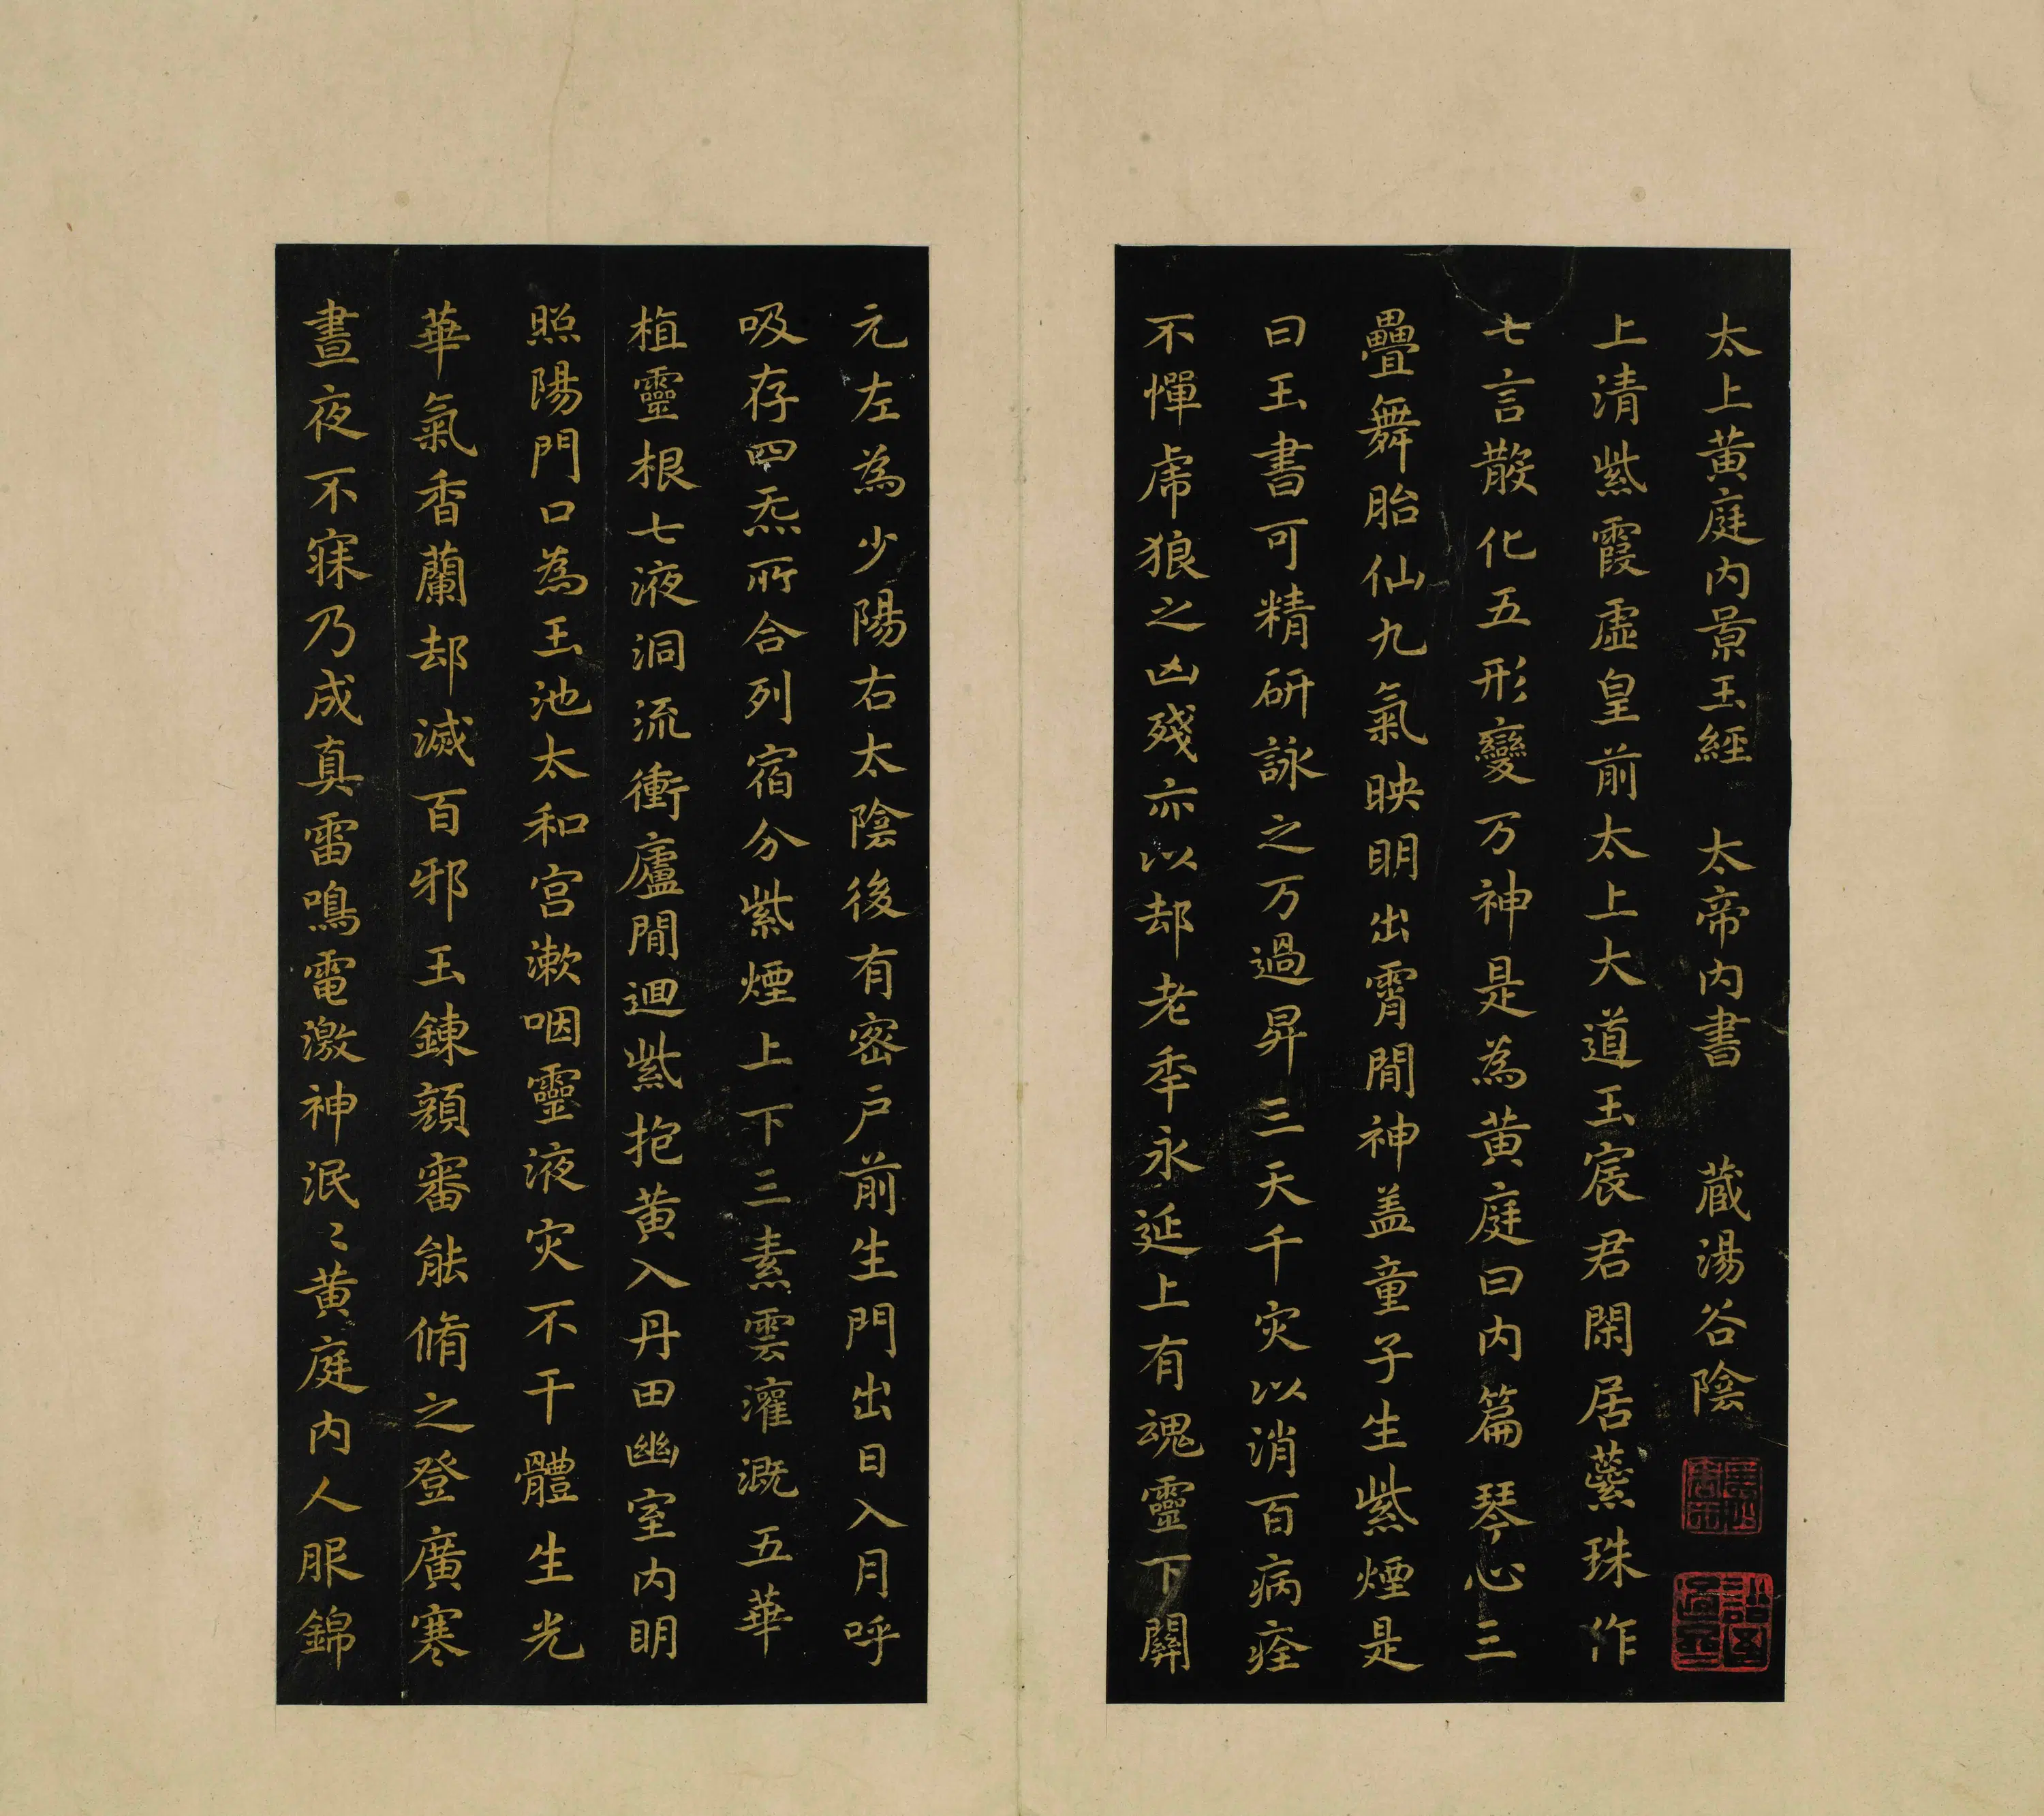 太上黄庭内景玉經　太帝内書　藏湯谷陰
上清紫霞虛皇前太上大道玉宸君閑居蘂珠作
七言散化五形變万神是為黄庭曰内篇琴心三
疊舞胎仙九氣映明出霄閒神盖童子生紫煙是
曰玉書可精研詠之万過昇三天千灾以消百病痊
不憚虎狼之凶殘亦以却老年永延上有魂靈下關
元左為少陽右太陰後有密户前生門出日入月呼
吸存四炁所合列宿分紫煙上下三素雲灌溉五華
植靈根七液洞流衝廬閒迴紫抱黄入丹田幽室内明
照陽門口為玉池太和宫漱咽靈液灾不干體生光
華氣香蘭却滅百邪玉鍊顔審能脩之登廣寒
晝夜不寐乃成真雷鳴電激神泯〻黄庭内人服錦